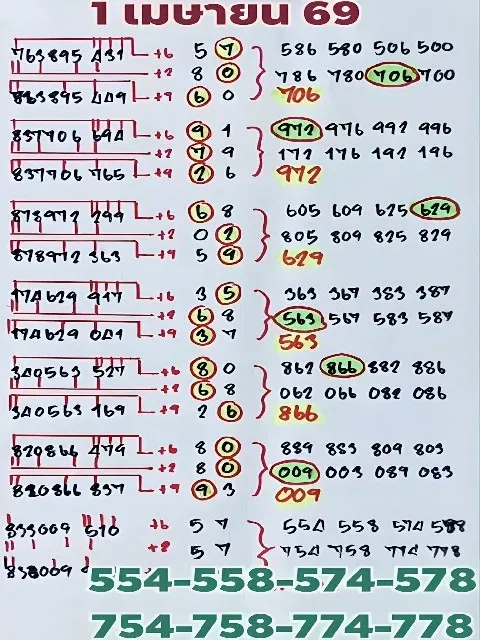 1 เมษายน 69
763895 431 +6 5 7 586 580 506 500
+2 8 0 786 780 706 700
863895 449 +9 6 0 706
837706 694 +6 9 1 972 976 992 996
+2 7 9 172 176 192 196
837706 765 +9 2 6 972
878972 299 +6 6 8 605 609 625 629
+2 0 2 805 809 825 829
878972 363 +9 5 9 629
174629 917 +6 3 5 363 367 383 387
+2 6 8 563 567 583 587
174629 041 +9 3 7 563
340563 527 +6 8 0 862 866 882 886
+2 6 8 062 066 082 086
340563 169 +9 2 6 866
820866 479 +6 8 0 889 883 809 803
+2 8 0 009 003 089 083
820866 837 +9 9 3 009
833009 510 +6 5 7 554 558 574 578
+2 5 7 754 758 774 778
833009
554-558-574-578
754-758-774-778